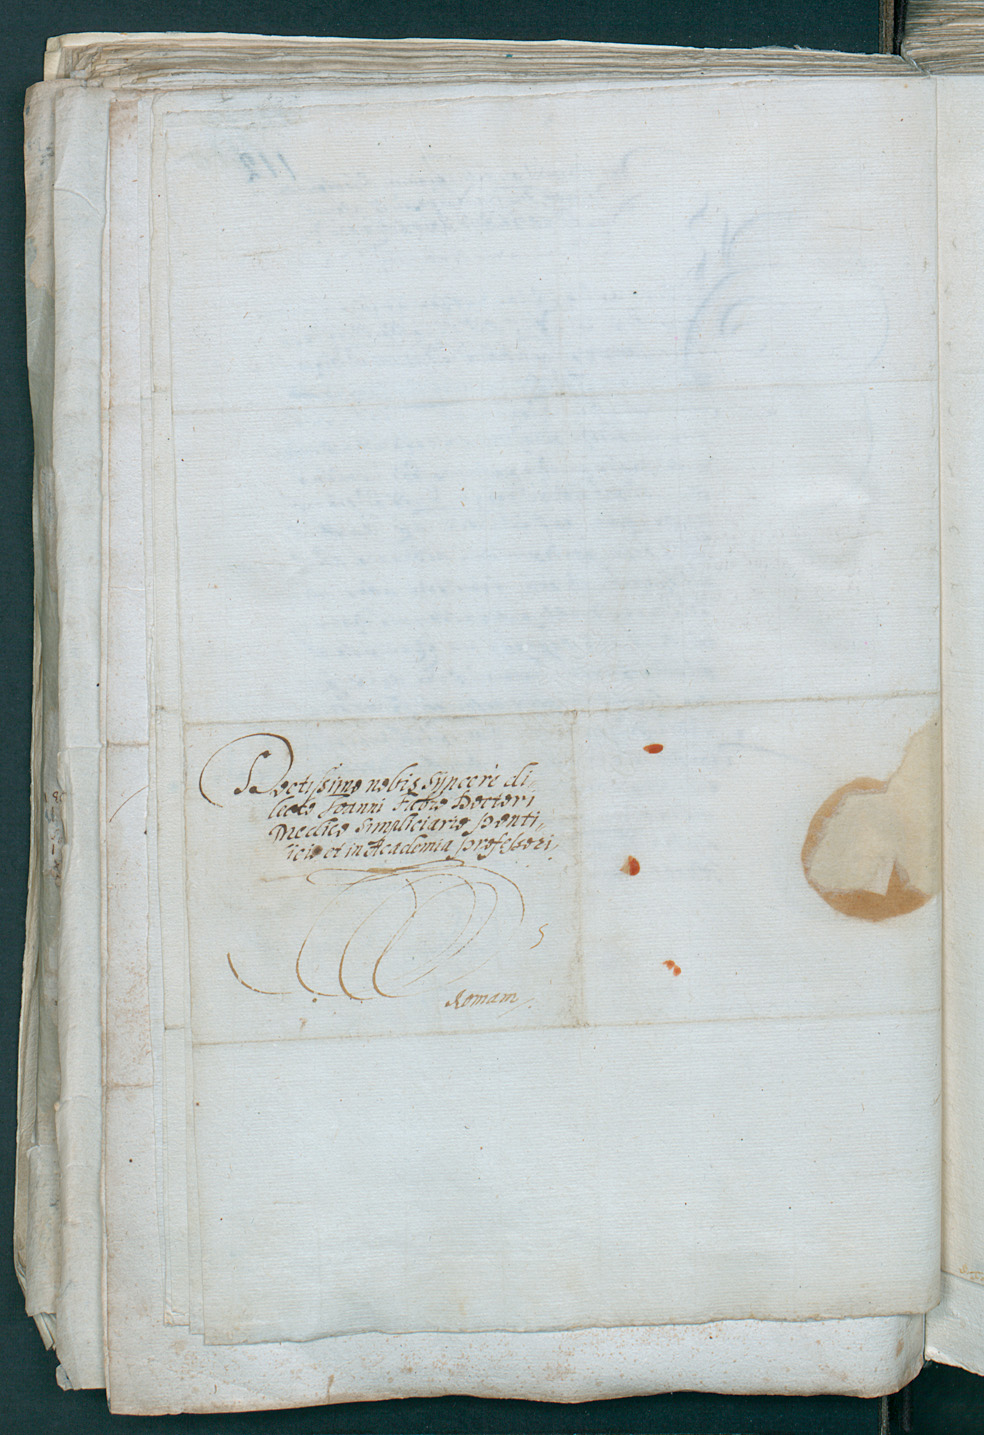 Doctissimo nobis syncerè di-
lecto Joanni Fabro Doctori
Medico Simpliciario Ponti-
ficio et in Academia Professori.
Romam